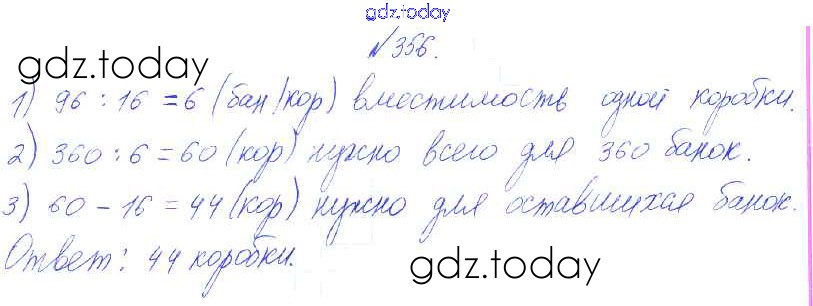 gdz.today
№356.
gdz.today
1) 96 : 16 = 6 (бан/кор) вместимость одной коробки.
2) 360 : 6 = 60 (кор) нужно всего для 360 банок.
3) 60 - 16 = 44 (кор) нужно для оставшихся банок.
Ответ: 44 коробки.
gdz.today